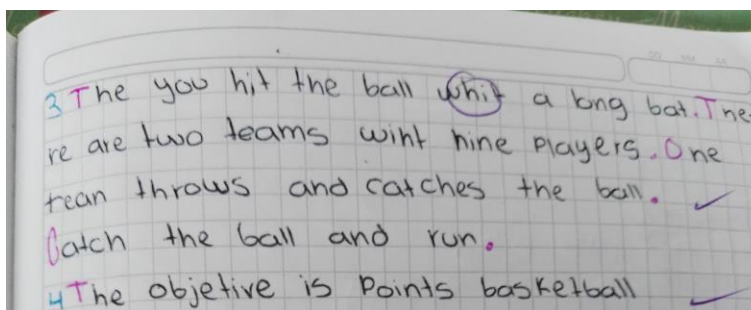 3 The you hit the ball whit a long bat. The
re are two teams wint nine players. One
tean throws and catches the ball.
Catch the ball and run.
4 The objetive is points basketball